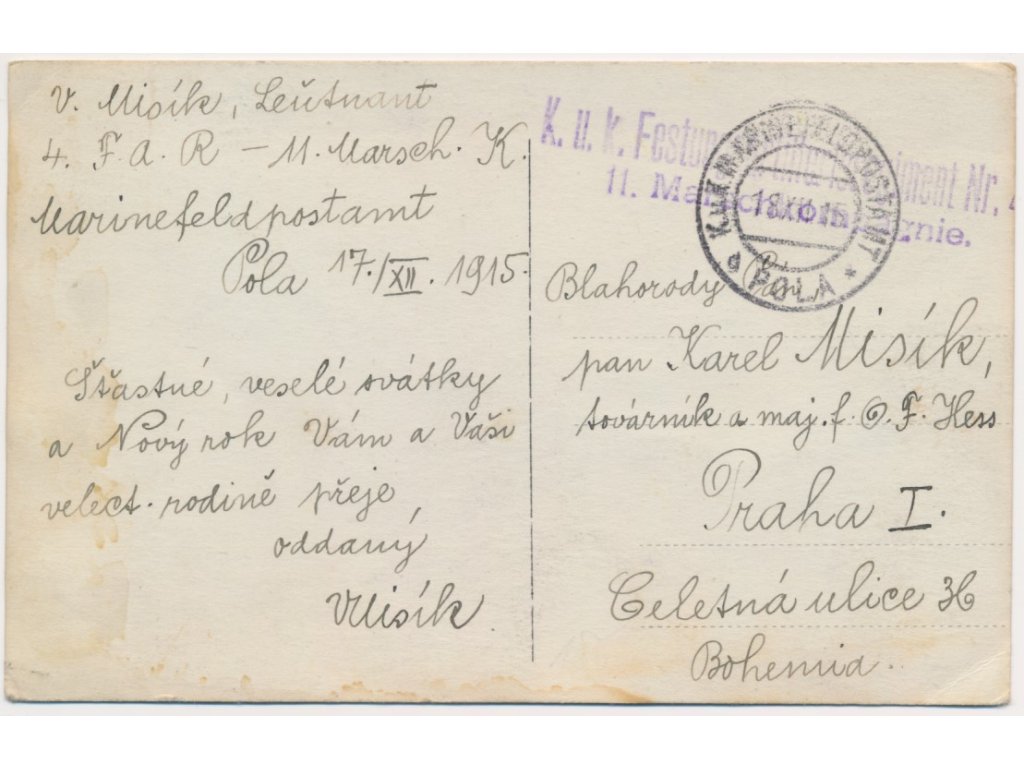 V. Misík, Leutnant
4. F. A. R – 11. Marsch. K.
Marinefeldpostamt
Pola 17./XII. 1915.
Šťastné, veselé svátky
a Nový rok Vám a Vaší
velect. rodině přeje
oddaný
VMisík
K. u. k. Festungs Nr. 4
11. Marschkompagnie.
K.u.K. MARINEFELDPOSTAMT
18 XII 15
* POLA *
Blahorodý Pán
pan Karel Misík,
továrník a maj. f. O. F. Hess
Praha I.
Celetná ulice 36
Bohemia.